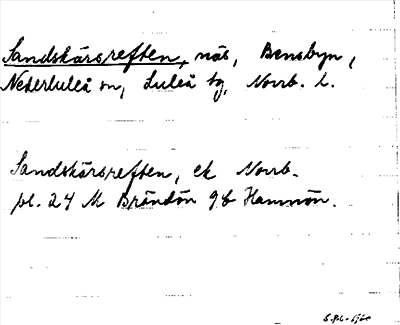 Sandskärsreften, näs, Bensbyn,
Nederluleå sn, Luleå tg, Norrb. l.
Sandskärsreften, ek Norrb.
pl. 24 M Brändön 9b Hamnön.